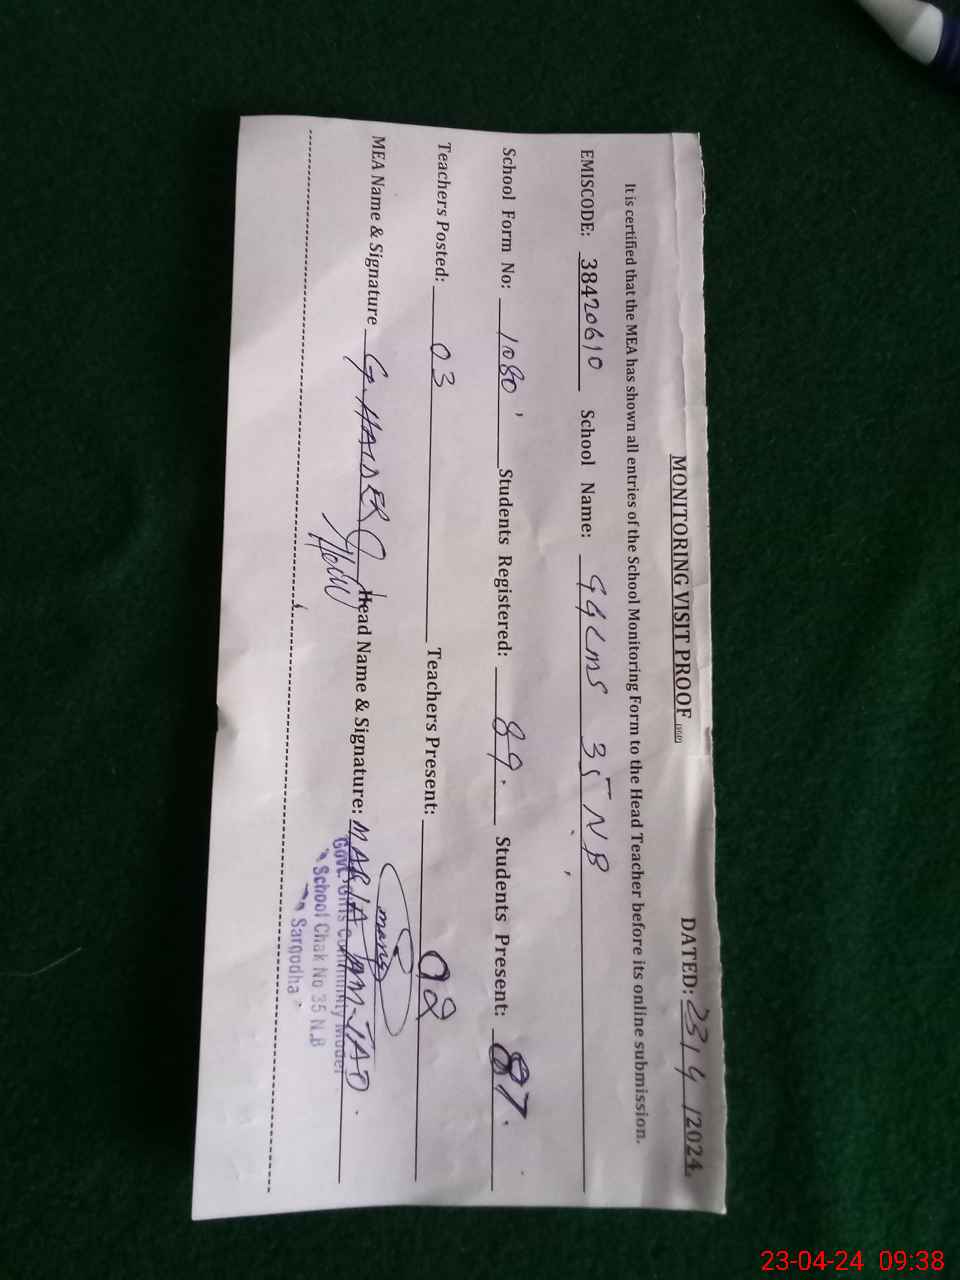 MONITORING VISIT PROOF DATED: 23/4/2024
It is certified that the MEA has shown all entries of the School Monitoring Form to the Head Teacher before its online submission.
EMISCODE: 38420610 School Name: GGCMS 35 NB
School Form No: 1080 Students Registered: 89. Students Present: 87.
Teachers Posted: 03 Teachers Present: 02
MEA Name & Signature G. HAIDER Head Name & Signature: MARIA AMJAD.
Govt. Girls Community Model
School Chak No 35 N.B
Sargodha
23-04-24 09:38